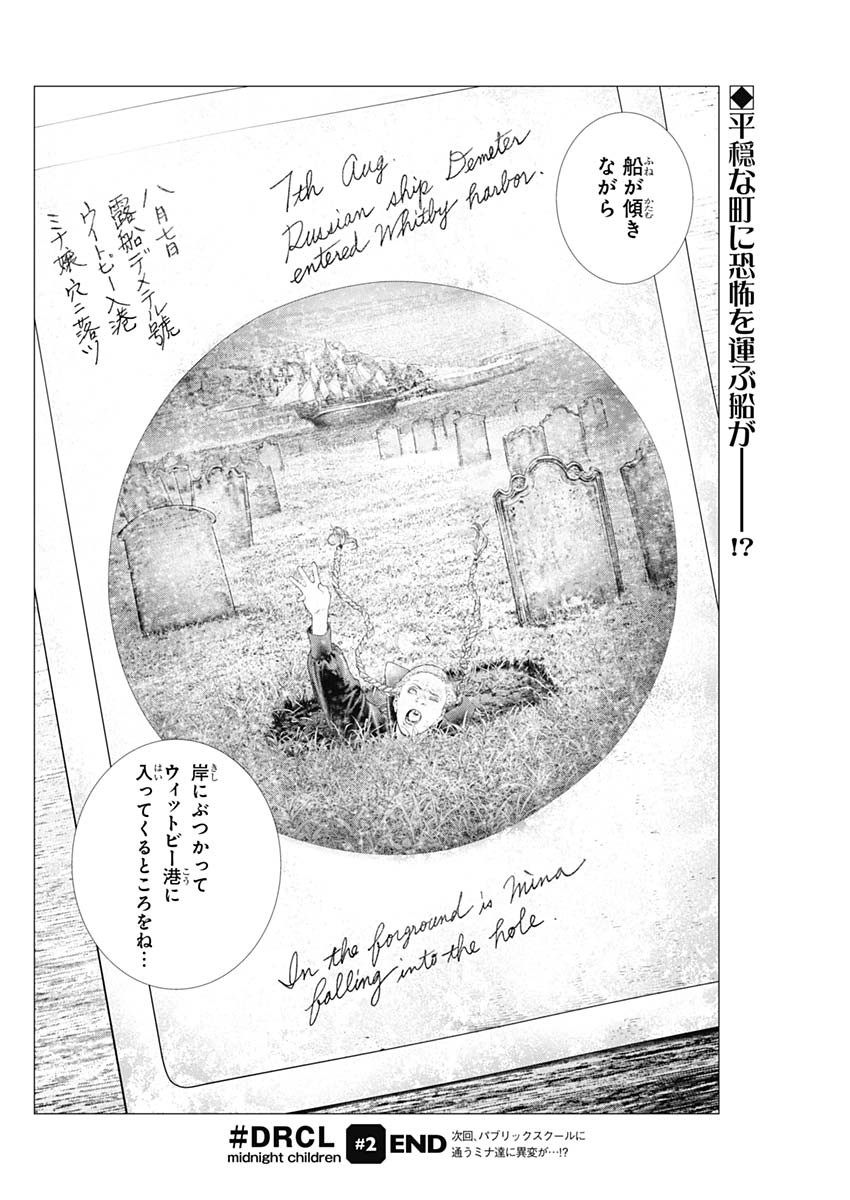 ◆平穏な町に恐怖を運ぶ船が――!?
船が傾き
ながら
7th Aug.
Russian ship Demeter
entered Whitby harbor.
八月七日
露船デメテル號
ウイトビー入港
ミナ嬢穴ニ落ツ
岸にぶつかって
ウィットビー港に
入ってくるところをね…
In the forground is Mina
falling into the hole.
#DRCL
midnight children
#2
END
次回、パブリックスクールに
通うミナ達に異変が…!?